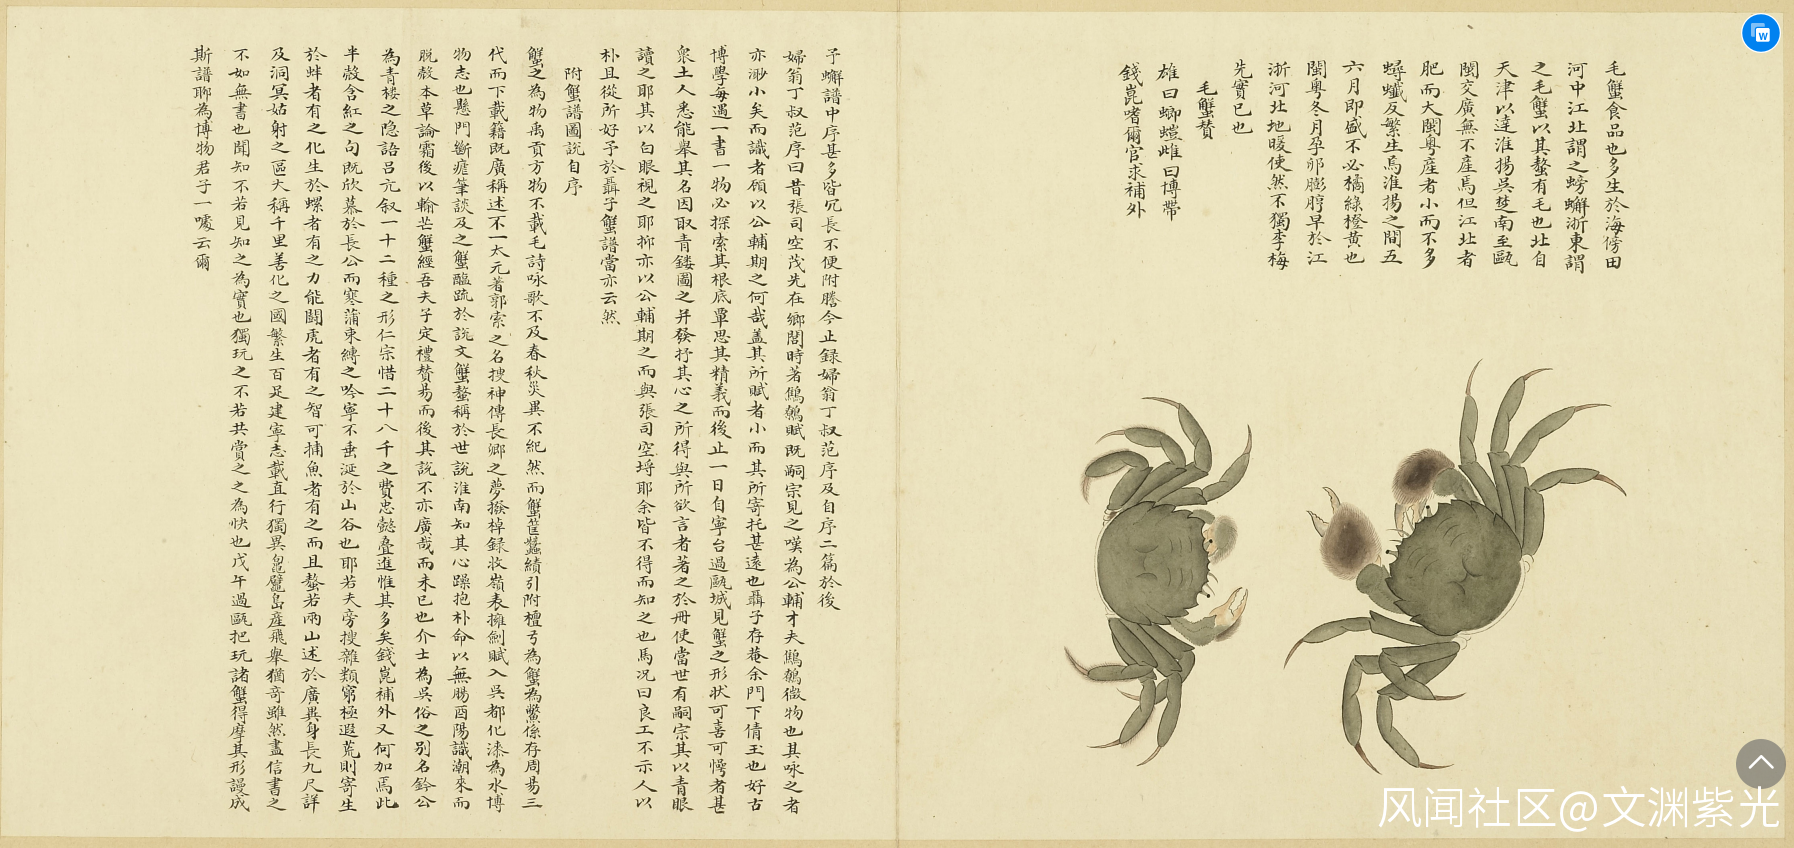 毛蟹食品也多生於海傍田
河中江北謂之螃蠏浙東謂
之毛蟹以其螯有毛也北自
天津以達淮揚吳楚南至甌
閩交廣無不產焉但江北者
肥而大閩粵產者小而不多
蟳蠘反繁生焉淮揚之間五
六月即盛不必橘綠橙黃也
閩粵冬月孕卵膨脝早於江
浙河北地暖使然不獨李梅
先實已也
毛蟹贊
雄曰蜋螘雌曰博帶
錢崑嗜爾官求補外
予蠏譜中序甚多皆冗長不便附謄今止録婦翁丁叔范序及自序二篇於後
婦翁丁叔范序曰昔張司空茂先在鄉閭時著鷦鷯賦既嗣宗見之嘆為公輔才夫鷦鷯微物也其咏之者
亦渺小矣而識者頋以公輔期之何哉盖其所賦者小而其所寄托甚遠也聶子存菴余門下倩玉也好古
博學每遇一書一物必探索其根底覃思其精義而後止一日自寧台過甌城見蟹之形状可喜可愕者甚
衆土人悉能舉其名因取青鏤圖之并發抒其心之所得與所欲言者著之於冊使當世有嗣宗其以青眼
讀之耶其以白眼視之耶抑亦以公輔期之而與張司空埒耶余皆不得而知之也馬況曰良工不示人以
朴且從所好予於聶子蟹譜當亦云然
附蟹譜圖説自序
蟹之為物禹貢方物不載毛詩咏歌不及春秋災異不紀然而蟹筐蠶績引附檀弓為蟹為鱉係存周易三
代而下載籍既廣稱述不一太元著郭索之名搜神傳長卿之夢撥棹録收嶺表擁劍賦入吳都化漆為水博
物志也懸門斷瘧筆談及之蟹醢疏於説文蟹螯稱於世説淮南知其心躁抱朴命以無腸酉陽識潮來而
脱殼本草論霜後以輸芒蟹經吾夫子定禮贊易而後其説不亦廣哉而未已也介士為吳俗之别名鈐公
為青樓之隐語吕亢叙一十二種之形仁宗惜二十八千之費忠懿疊進惟其多矣錢崑補外又何加焉此
半殼含紅之句既欣慕於長公而寒蒲束縛之吟寧不垂涎於山谷也耶若夫旁搜雜類窮極遐荒則寄生
於蚌者有之化生於螺者有之力能鬪虎者有之智可捕魚者有之而且螯若兩山述於廣異身長九尺詳
及洞冥姑射之區大稱千里善化之國繁生百足建寧志載直行獨異鼂鼊島產飛舉猶竒雖然盡信書之
不如無書也聞知不若見知之為實也獨玩之不若共賞之之為快也戊午過甌把玩諸蟹得摩其形謾成
斯譜聊為博物君子一噱云爾
风闻社区@文渊紫光